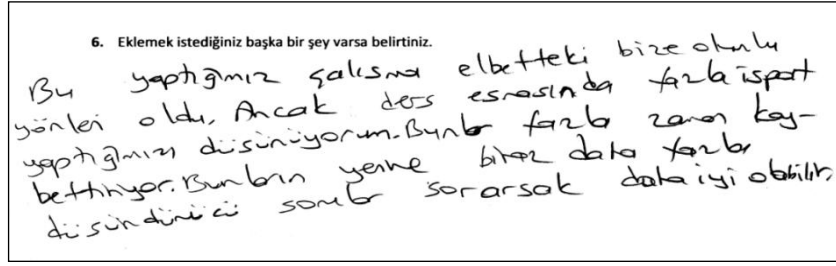 6. Eklemek istediğiniz başka bir şey varsa belirtiniz.
Bu yaptığımız çalışma elbetteki bize olumlu
yönleri oldu. Ancak ders esnasında fazla ispat
yaptığımızı düşünüyorum. Bunlar fazla zaman kay-
bettiriyor. Bunların yerine biraz daha fazla
düşündürücü sorular sorarsak daha iyi olabilir.